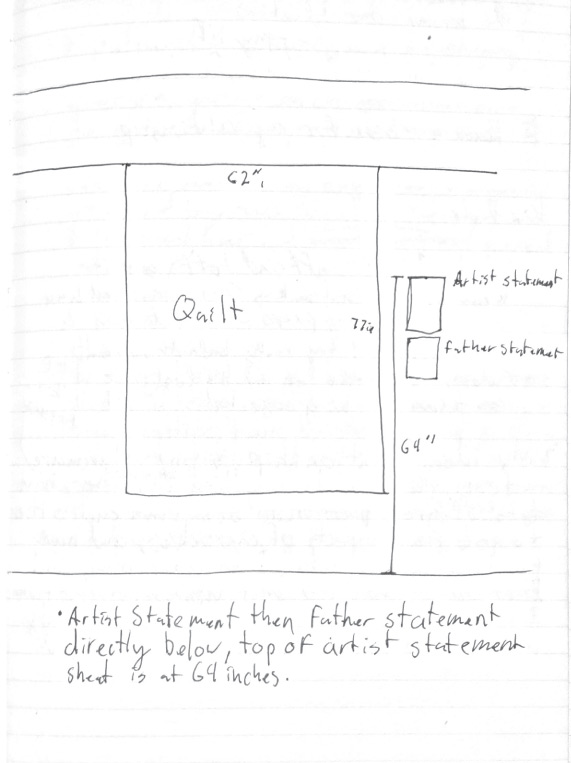 62"
Quilt
77in
Artist statement
father statement
64"
• Artist Statement then father statement
directly below, top of artist statement
sheet is at 64 inches.